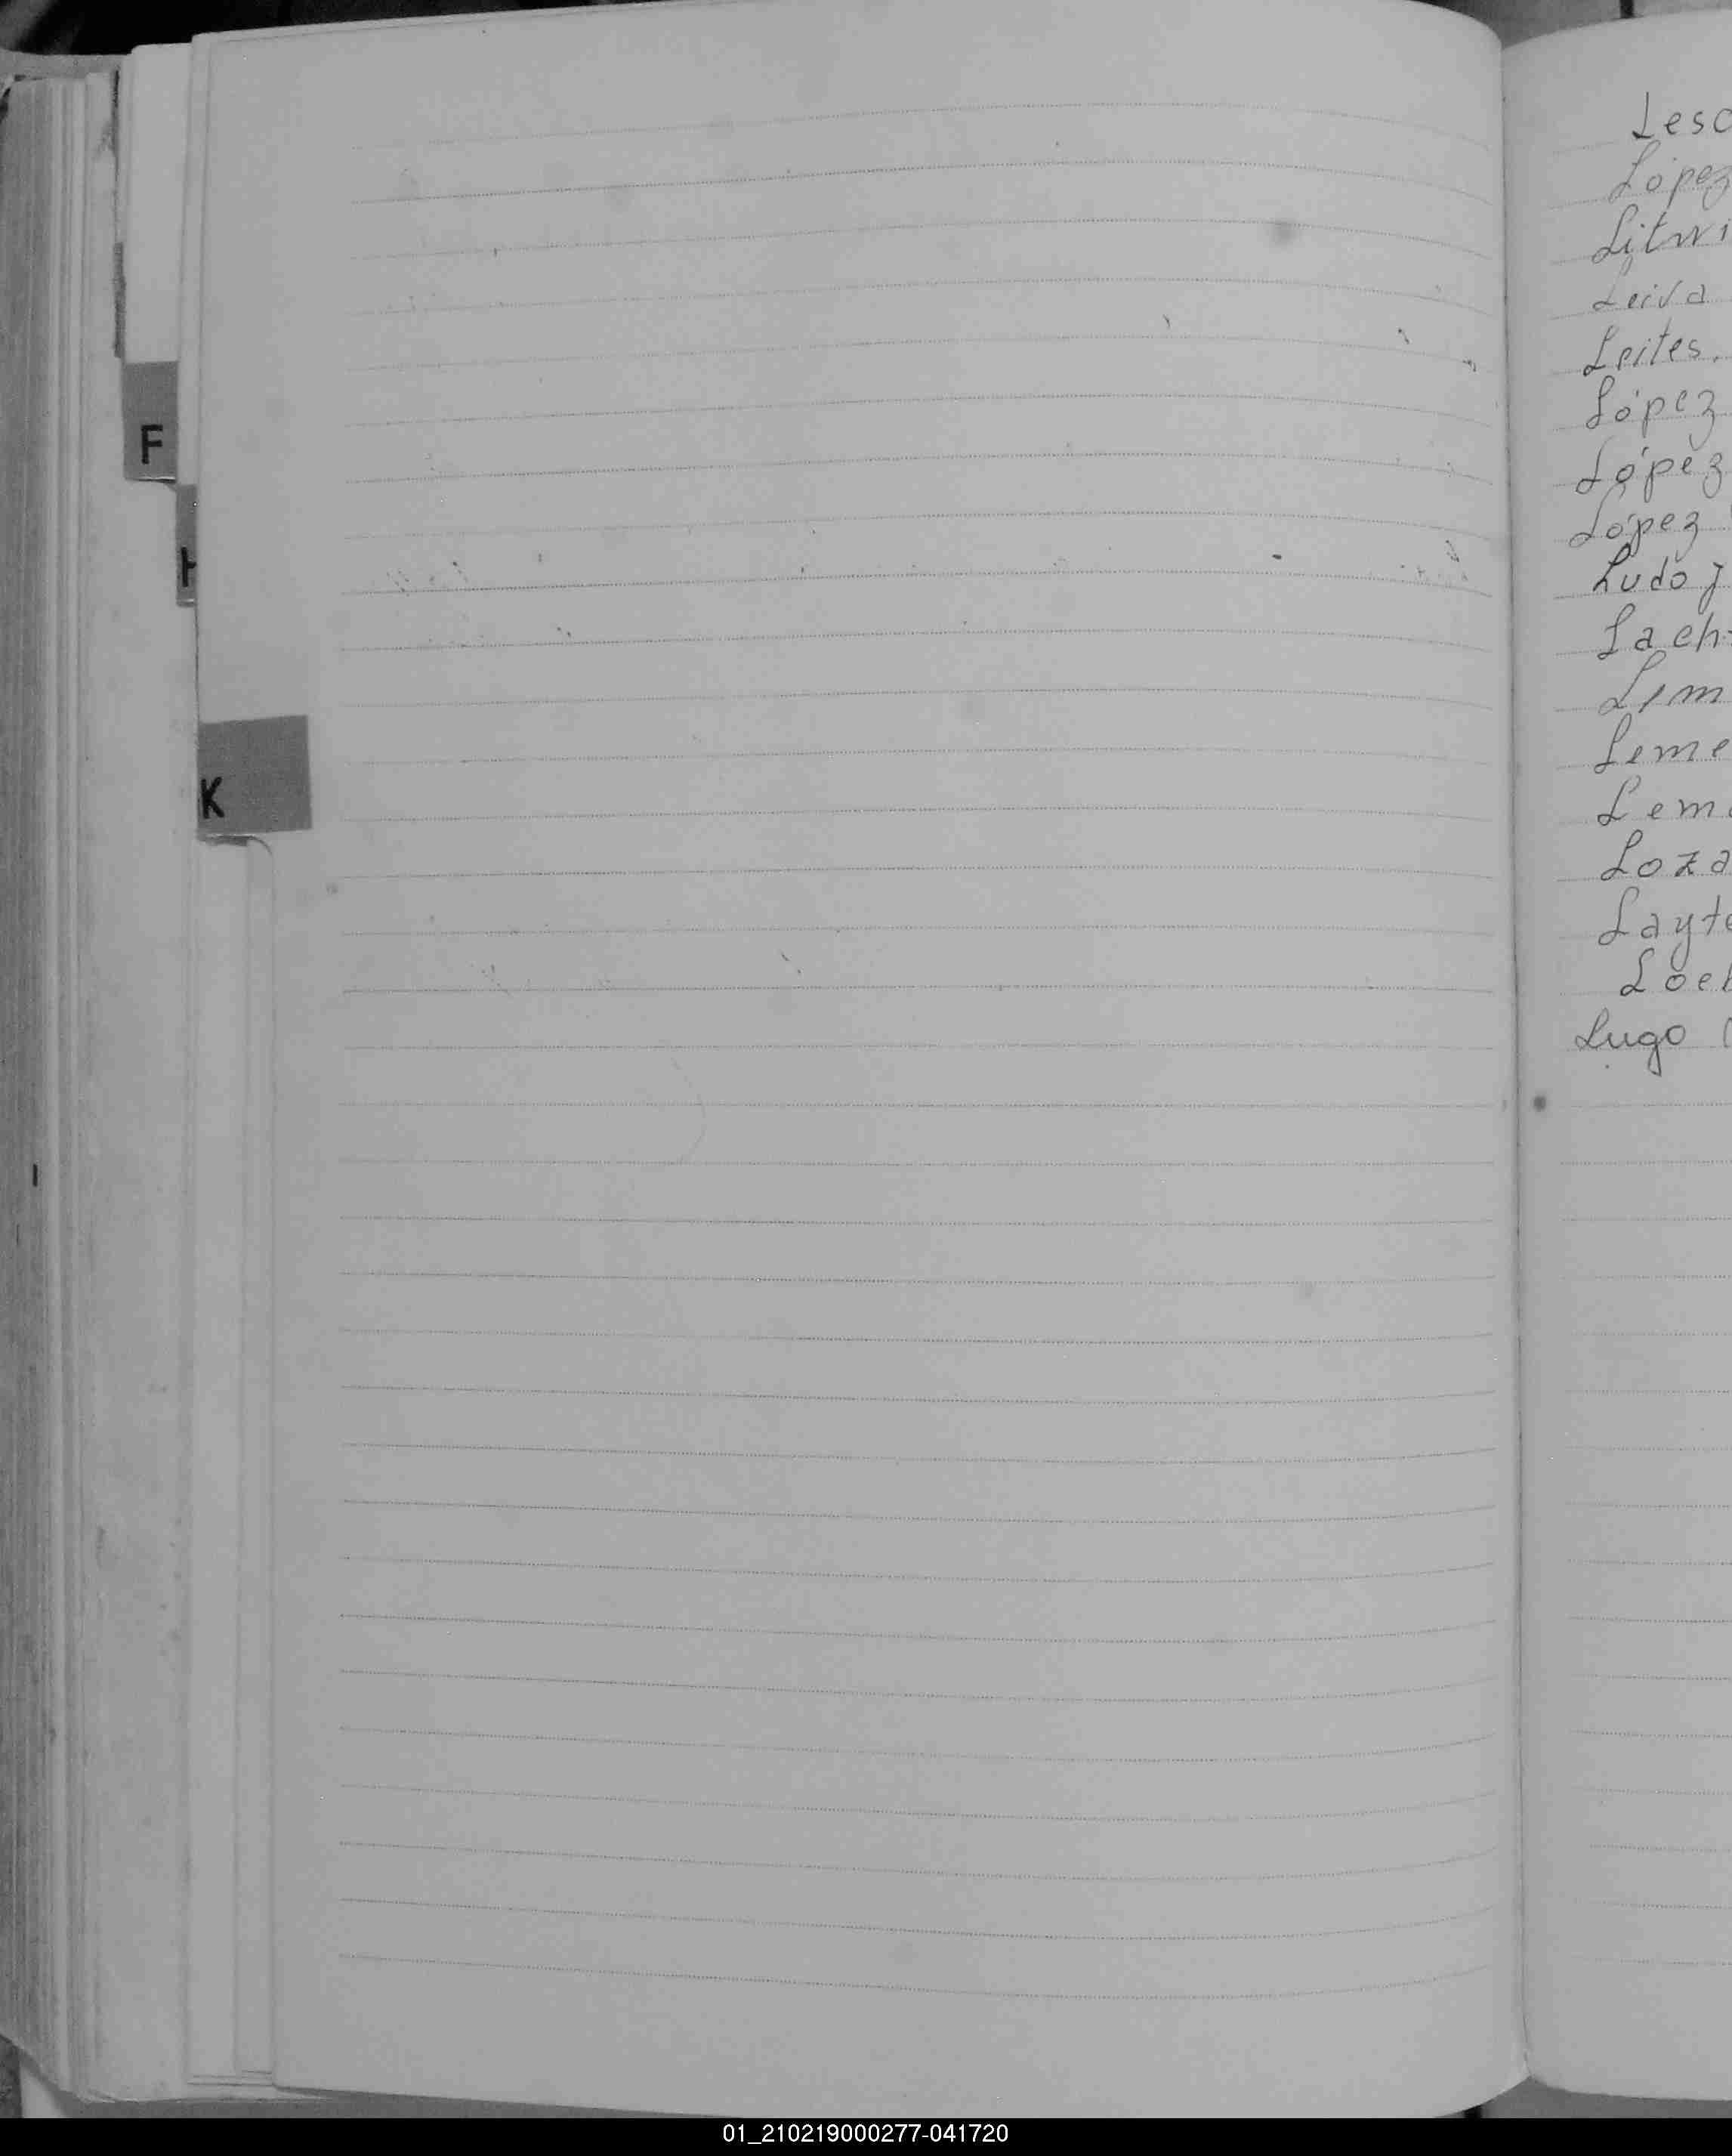 F
H
K
Lesc
López
Litwi
Leiva
Leites.
López
López
López
Ludo
Lach
Lim
Leme
Lem
Loza
Layte
Loe
Lugo (
01_210219000277-041720